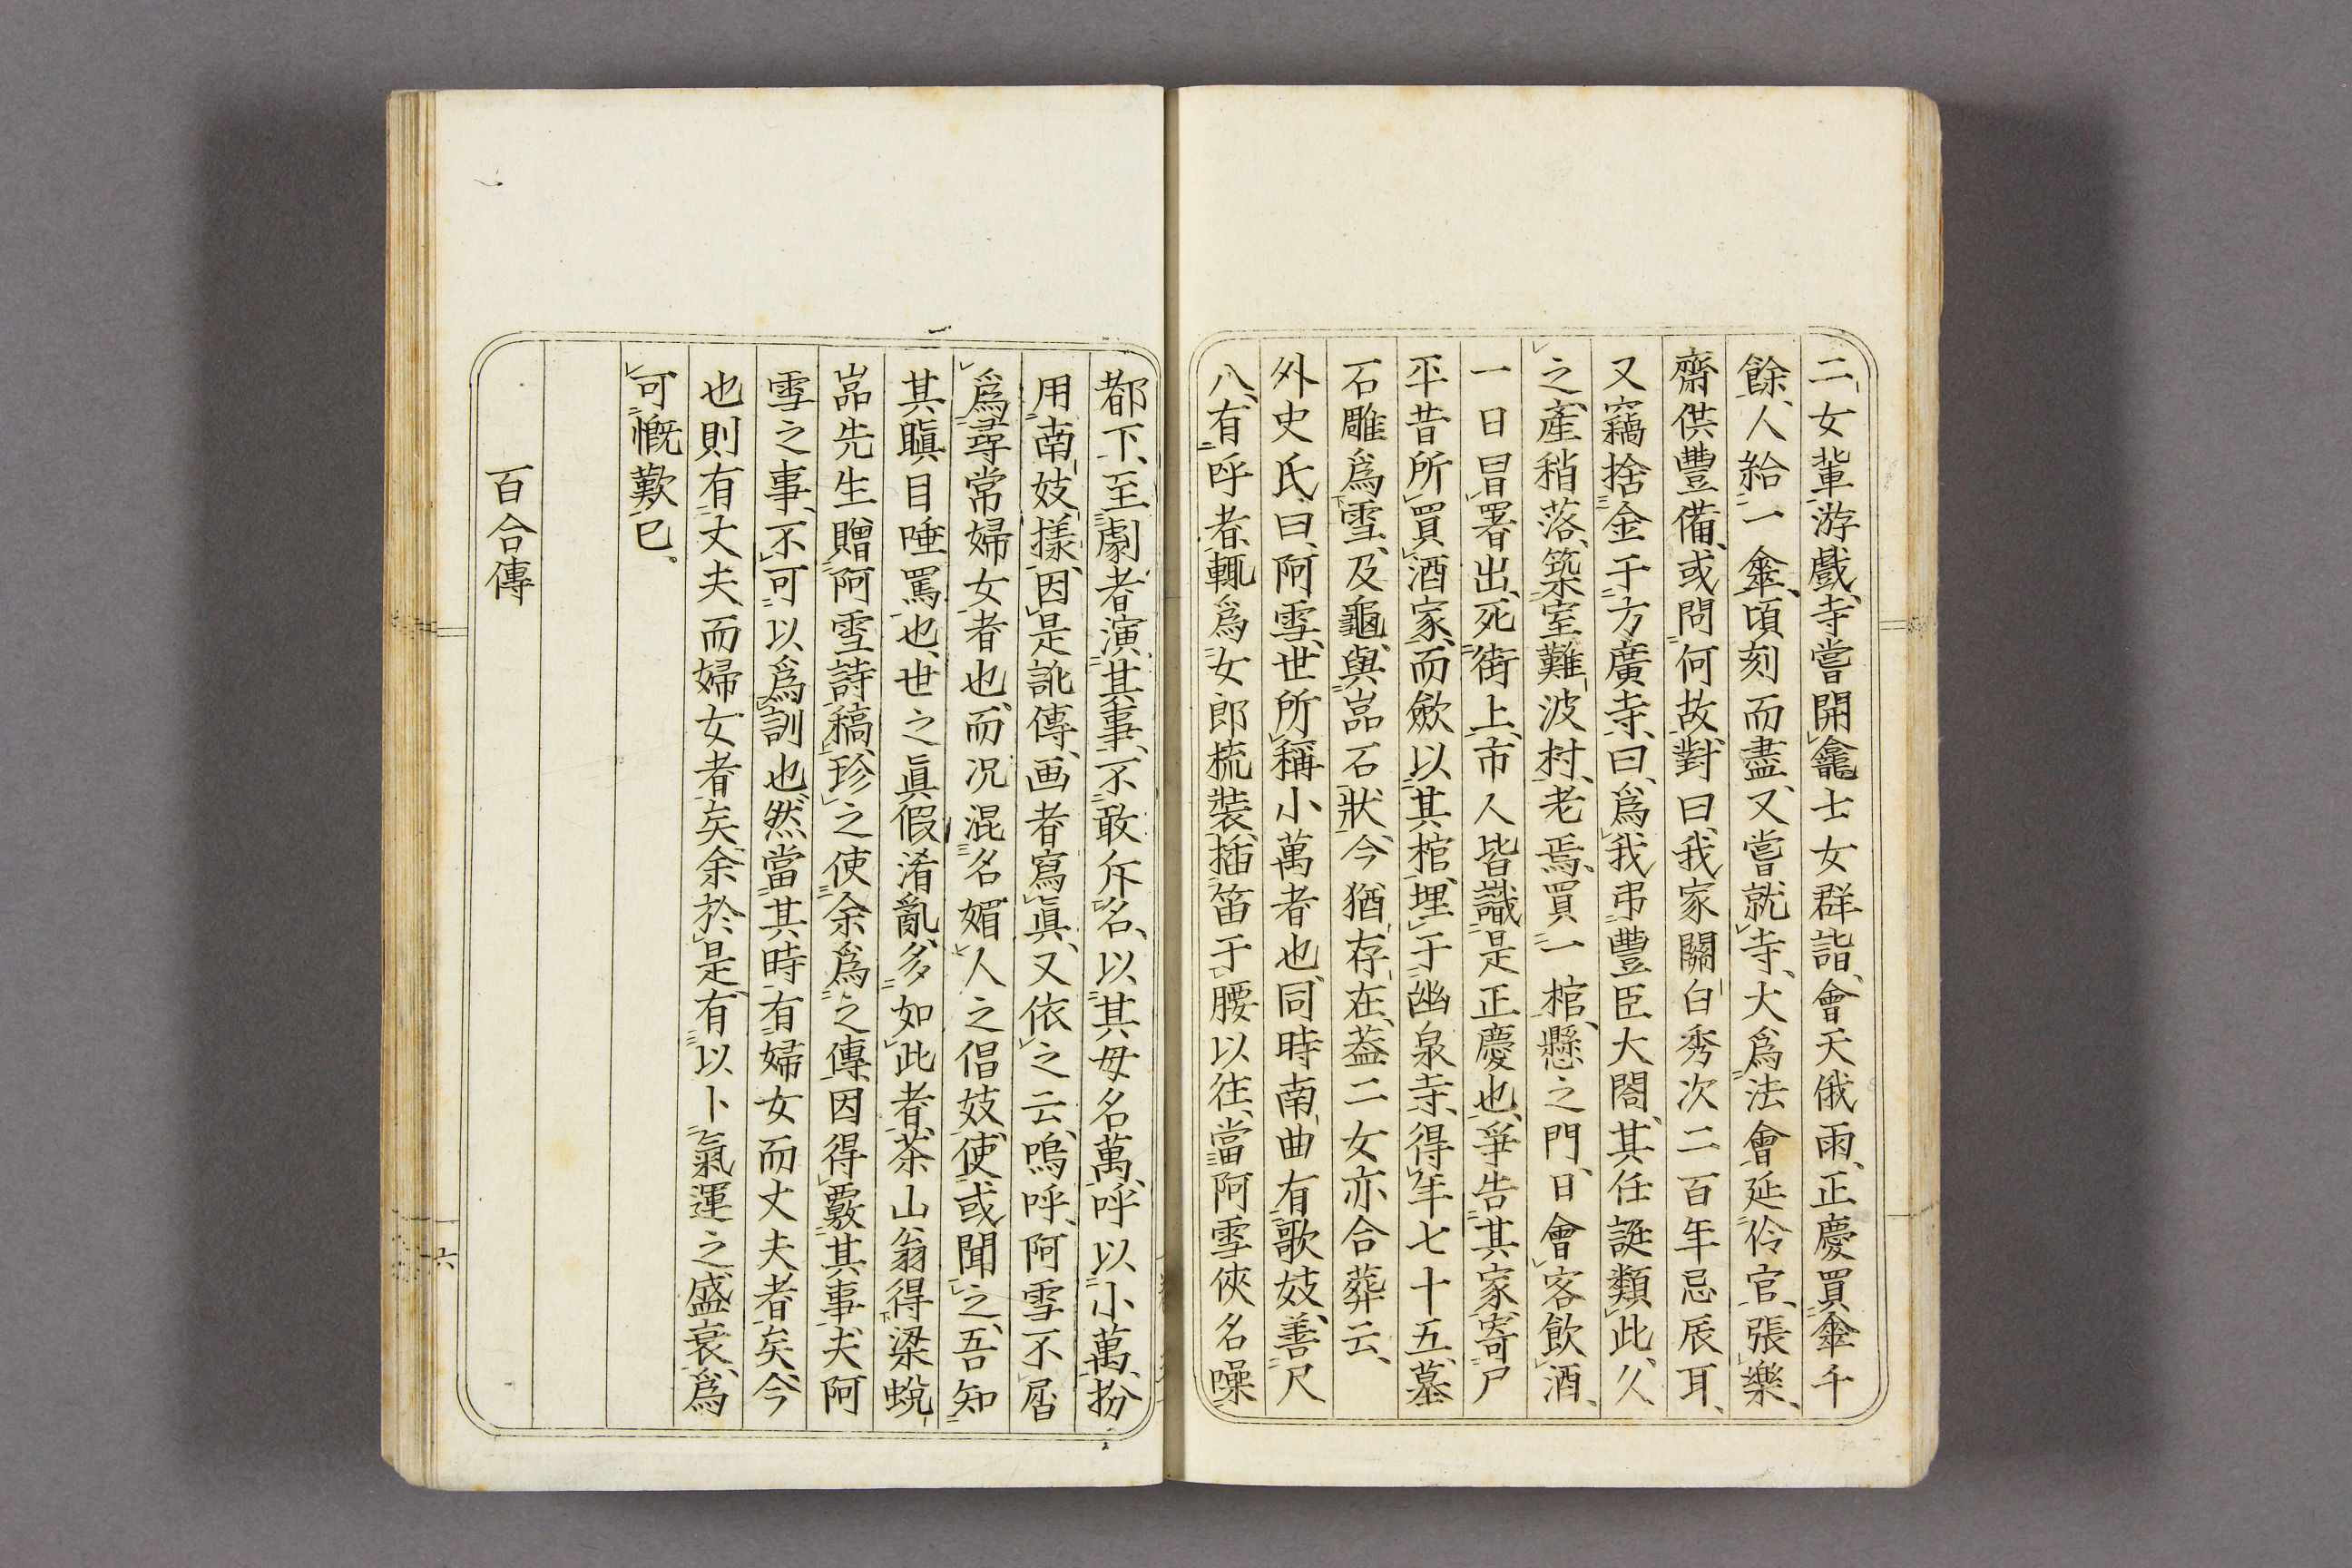 二女輩游戲、寺嘗開龕士女群詣、會天俄雨、正慶買傘千
餘、人給一傘、頃刻而盡、又嘗就寺、大爲法會延伶官、張樂、
齋供豐備、或問何故、對曰、我家關白秀次二百年忌辰耳、
又竊捨金于方廣寺、曰、爲我弔豐臣大閤、其任誕類此、久
之產稍落、築室難波村、老焉、買一棺、懸之門、日會客飲酒、
一日冒署出、死街上、市人皆識是正慶也、爭告其家、寄尸
平昔所買酒家、而斂以其棺、埋于幽泉寺、得年七十五、墓
石雕爲雪、及龜、與嵓石狀、今猶存在、蓋二女亦合葬云、
外史氏曰、阿雪、世所稱小萬者也、同時南曲有歌妓、善尺
八、有呼者、輒爲女郎梳裝、插笛于腰以往、當阿雪俠名噪
都下、至劇者演其事、不敢斥名、以其母名萬、呼以小萬、扮
用南妓樣、因是訛傳、画者寫眞、又依之云、嗚呼、阿雪不屑
爲尋常婦女者也、而况混名媚人之倡妓、使或聞之、吾知
其瞋目唾罵也、世之眞假淆亂、多如此者、茶山翁得梁蛻
嵓先生贈阿雪詩稿、珍之使余爲之傳、因得覈其事、夫阿
雪之事、不可以爲訓也、然當其時有婦女而丈夫者矣、今
也則有丈夫而婦女者矣、余於是有以卜氣運之盛衰、爲
可慨歎已。
百合傳
六